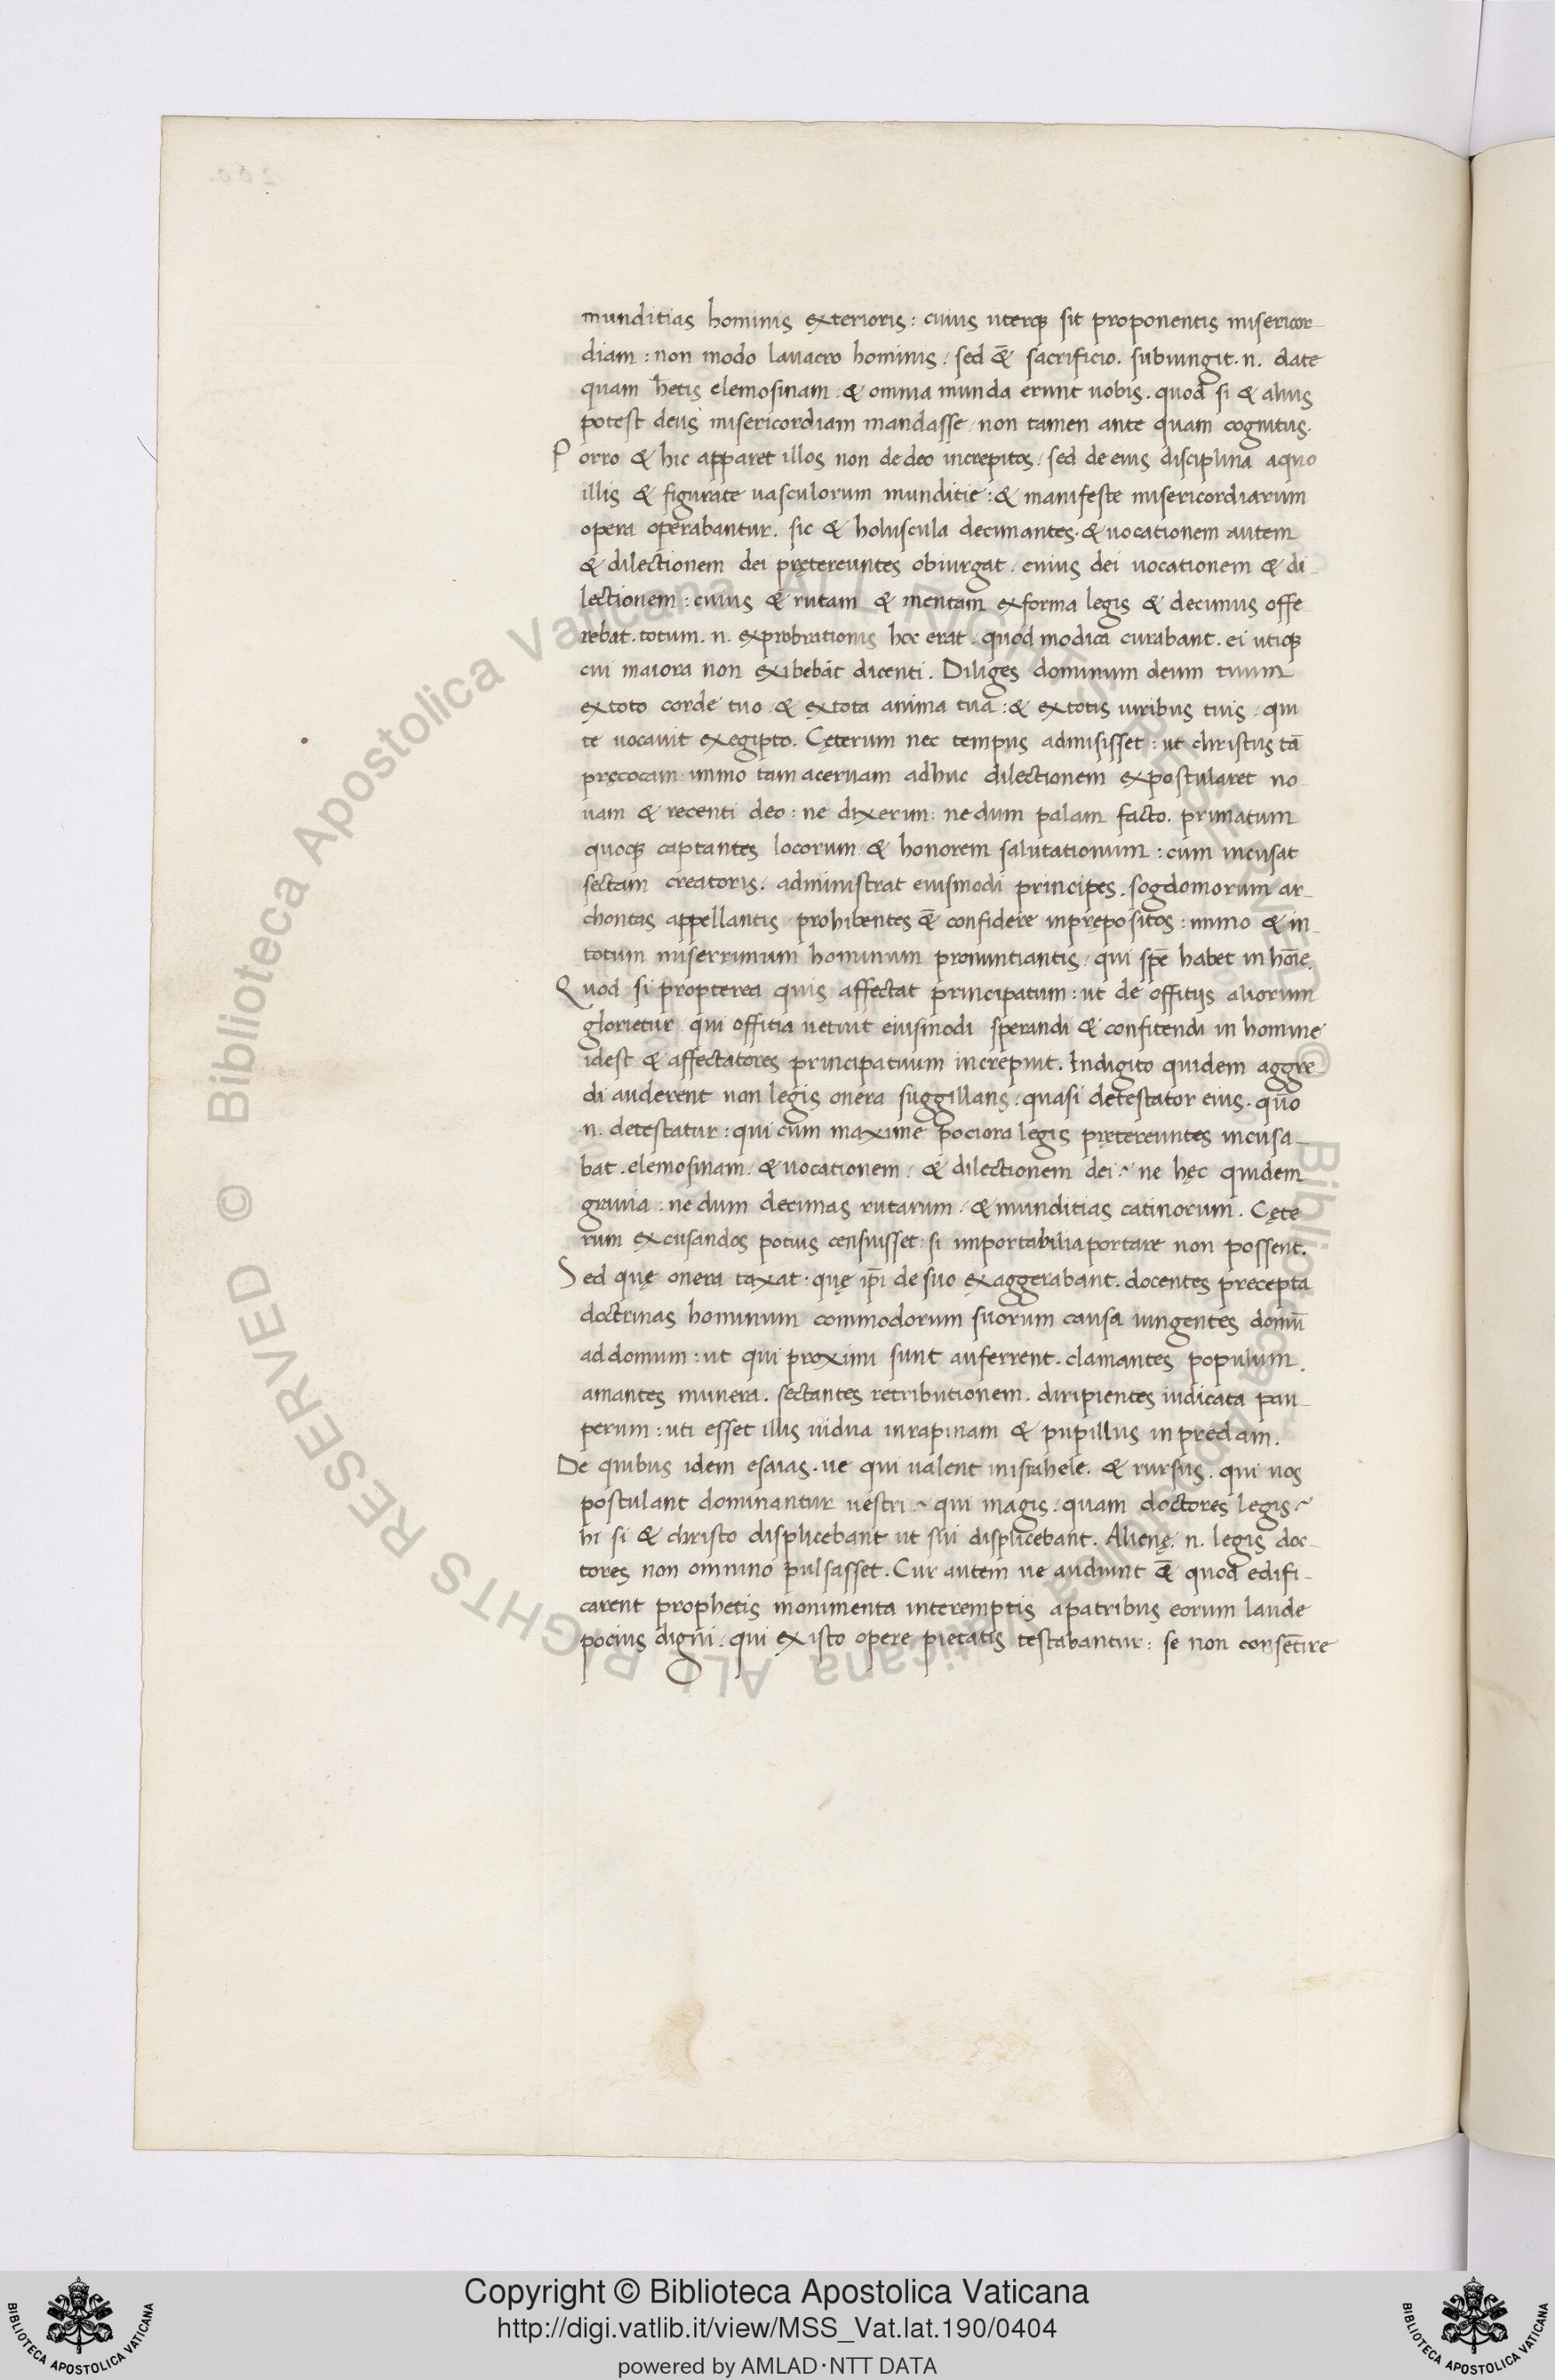 munditias hominis exterioris : cuius uterq; sit proponentis misericor-
diam : non modo lauacro hominis / sed &̄ sacrificio . subiungit . n. date
quam h̄etis elemosinam : & omnia munda erunt uobis . quod si & alius
potest deus misericordiam mandasse / non tamen ante quam cognitus .
Porro & hic apparet illos non de deo increpitos / sed de eius disciplina aquo
illis & figurate uasculorum munditie : & manifeste misericordiarum
opera operabantur . sic & holuscula decimantes . & uocationem autem
& dilectionem dei pretereuntes obiurgat . euius dei uocationem & di-
lectionem : cuius & rutam & mentam exforma legis & decimus offe
rebat . totum . n. exprobrationis hoc erat . quod modica curabant . ei utiq;
cui maiora non exibebāt dicenti . Diliges dominum deum tuum
extoto corde tuo . & extota anima tua : & extotis uiribus tuis . qui
te uocauit exegipto . Cęterum nec tempus admisisset : ut christus tā
pręcocam immo tam aceruam adhuc dilectionem expostularet no-
uam & recenti deo : ne dixerim : ne dum palam facto . primatum
quoq; captantes locorum & honorem salutationum : cum incusat
sectam creatoris . administrat eiusmodi principes . sogdomorum ar-
chontas appellantis prohibentes &̄ confidere inprępositos : immo & in-
totum miserrimum hominum pronuntiantis / qui spē habet in hōie .
Quod si propterea quis affectat principatum : ut de offitijs aliorum
glorietur qui offitia uetuit eiusmodi sperandi & confitendi in homine
idest & affectatores principatuum increpuit . Indigito quidem aggre
di auderent non legis onera suggillans . quasi detestator eius . quō
n. detestatur : qui cum maxime pociora legis pretereuntes incusa-
bat . elemosinam / & uocationem / & dilectionem dei ? ne hęc quidem
grauia : ne dum decimas rutarum / & munditias catinorum . Cęte
rum excusandos potius censuisset si importabilia portare non possent .
Sed quę onera taxat . quę ip̄i de suo exaggerabant . docentes precepta
doctrinas hominum commodorum suorum causa iungentes domū
ad domum : ut qui proximi sunt auferrent . clamantes populum .
amantes munera . sectantes retributionem . diripientes iudicata pau-
perum : uti esset illis uidua inrapinam & pupillus in predam .
De quibus idem esaias . ue qui ualent inisrahele . & rursus . qui uos
postulant dominantur uestri ? qui magis / quam doctores legis ?
hi si & christo displicebant ut sui displicebant . Alienę . n. legis doc-
tores non omnino pulsasset . Cur autem ue audiunt &̄ quod edifi-
carent prophetis monimenta interemptis apatribus eorum laude
pocius digni / qui ex isto opere pietatis testabantur : se non consētire
Copyright © Biblioteca Apostolica Vaticana
http://digi.vatlib.it/view/MSS_Vat.lat.190/0404
powered by AMLAD·NTT DATA
BIBLIOTECA APOSTOLICA VATICANA
BIBLIOTECA APOSTOLICA VATICANA
© Biblioteca Apostolica Vaticana ALL RIGHTS RESERVED